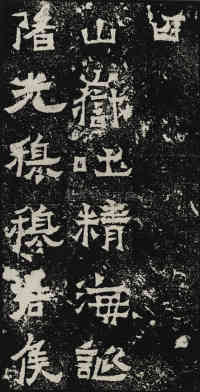 曰
山嶽吐精海誕
陼光穆穆君侯